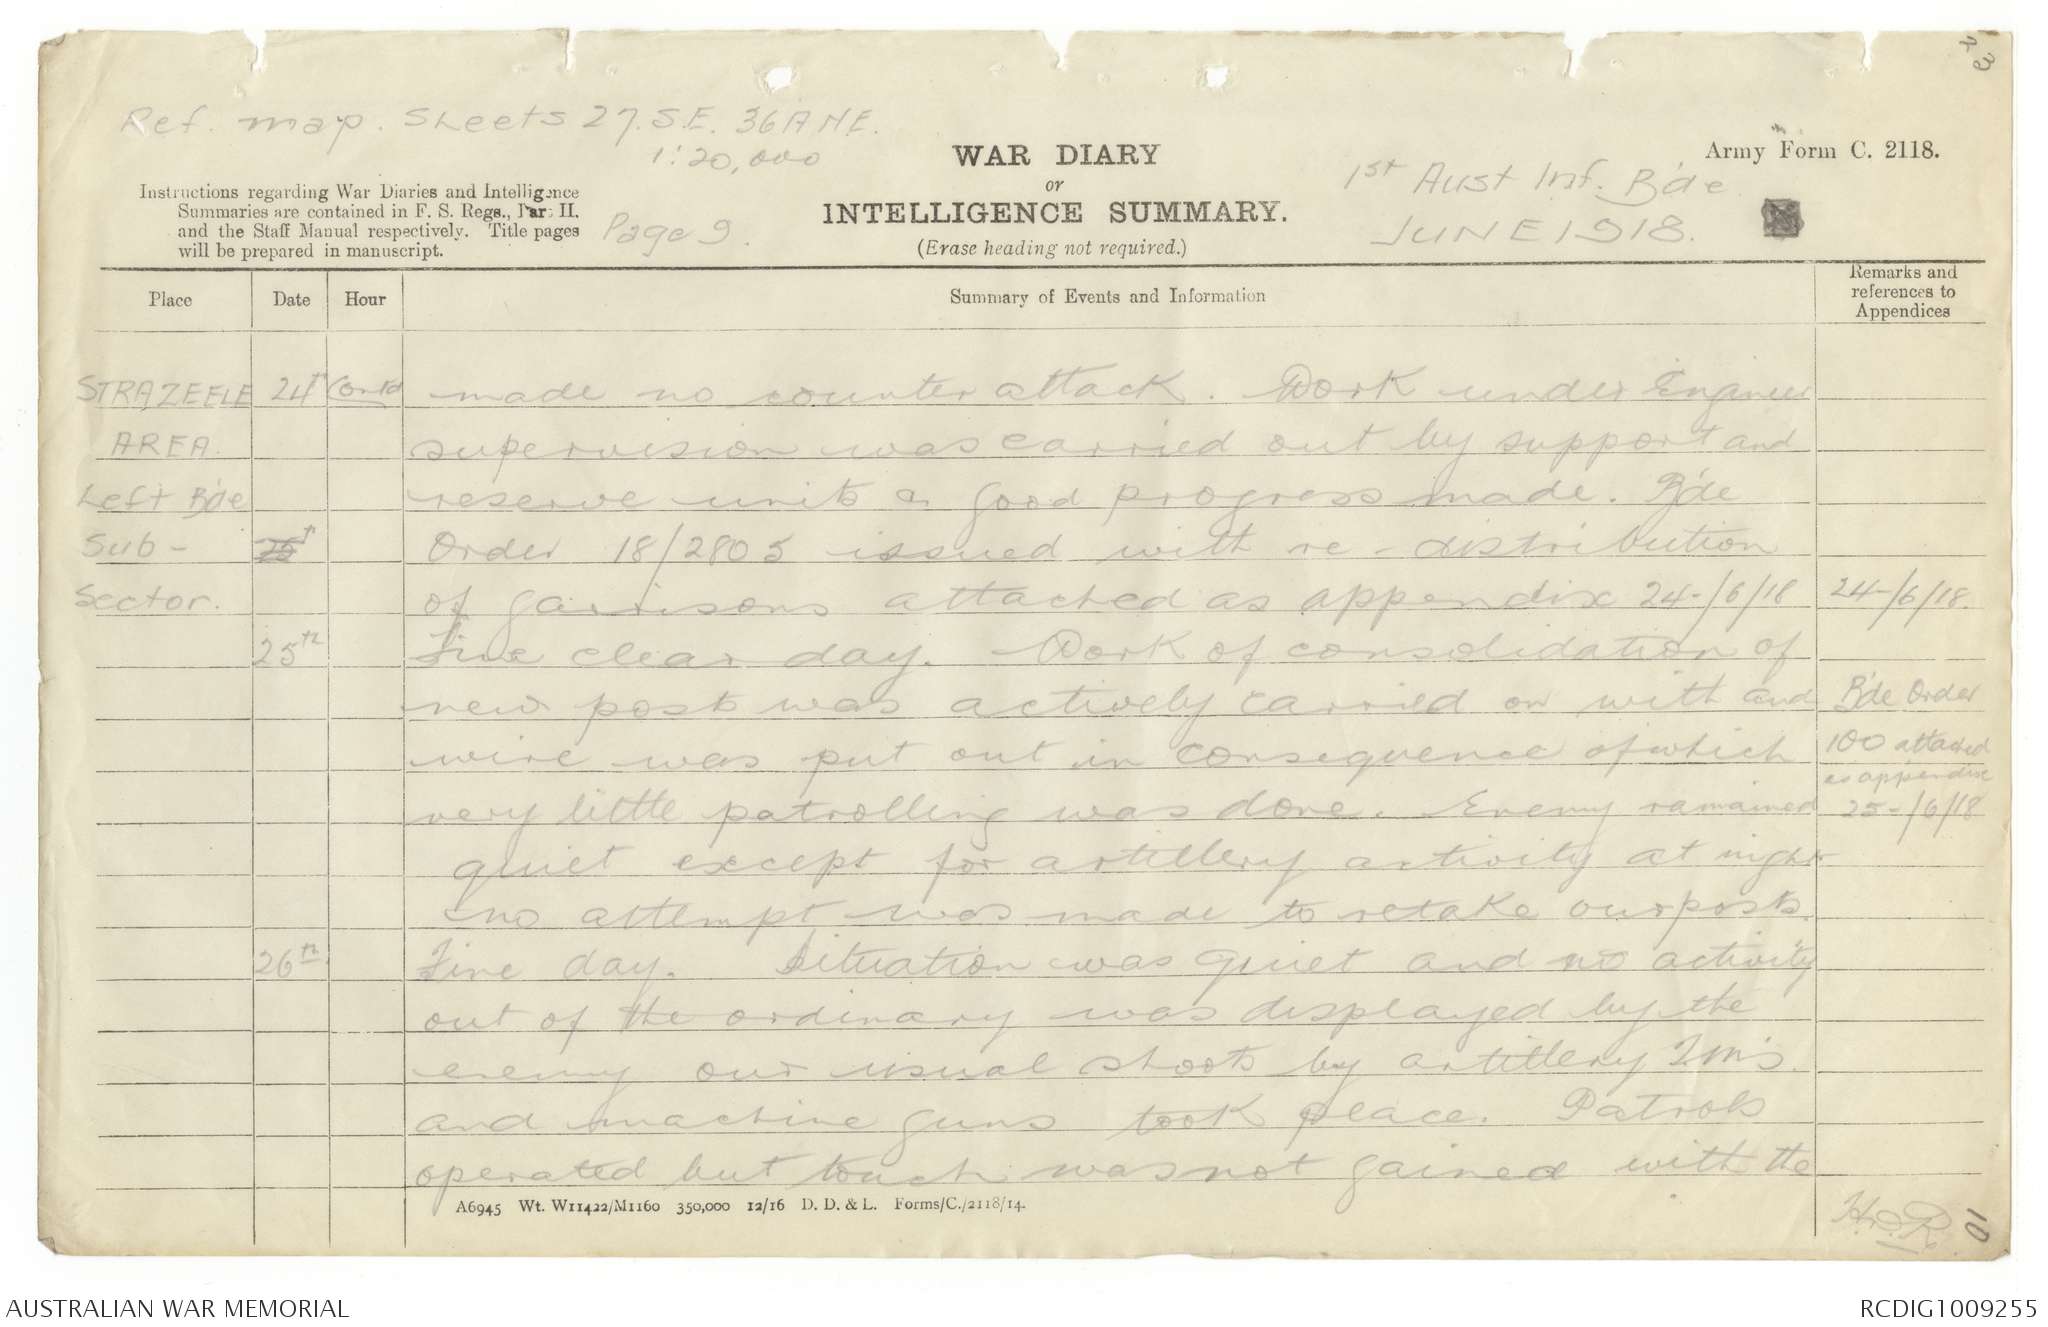 43
Ref. map. Sheets 27.S.E. 36A N.E.
1:20,000
WAR DIARY
or
INTELLIGENCE SUMMARY.
(Erase heading not required.)
Army Form C. 2118.
1st Aust Inf. Bde
JUNE 1918.
Instructions regarding War Diaries and Intelligence
Summaries are contained in F. S. Regs., Part II.
and the Staff Manual respectively. Title pages
will be prepared in manuscript.
Page 9.
Place Date Hour Summary of Events and Information Remarks and
references to
Appendices
STRAZEELE 24th Contd made no counter attack. Work under Engineer
AREA. supervision was carried out by support and
Left Bde reserve units & good progress made. Bde
Sub- Order 18/2805 issued with re-distribution
Sector. of garrisons attached as appendix 24-/6/18 24-/6/18.
25th Fine clear day. Work of consolidation of
new posts was actively carried on with and Bde Order
wire was put out in consequence of which 100 attached
as appendix
very little patrolling was done. Enemy ramained 25-/6/18
quiet except for artillery activity at night
no attempt was made to retake our posts.
26th Fine day. Situation was quiet and no activity
out of the ordinary was displayed by the
enemy our usual shoots by artillery T.M's.
and machine guns took place. Patrols
operated but touch was not gained with the
A6945 Wt. W11422/M1160 350,000 12/16 D. D. & L. Forms/C./2118/14.
10
AUSTRALIAN WAR MEMORIAL
RCDIG1009255